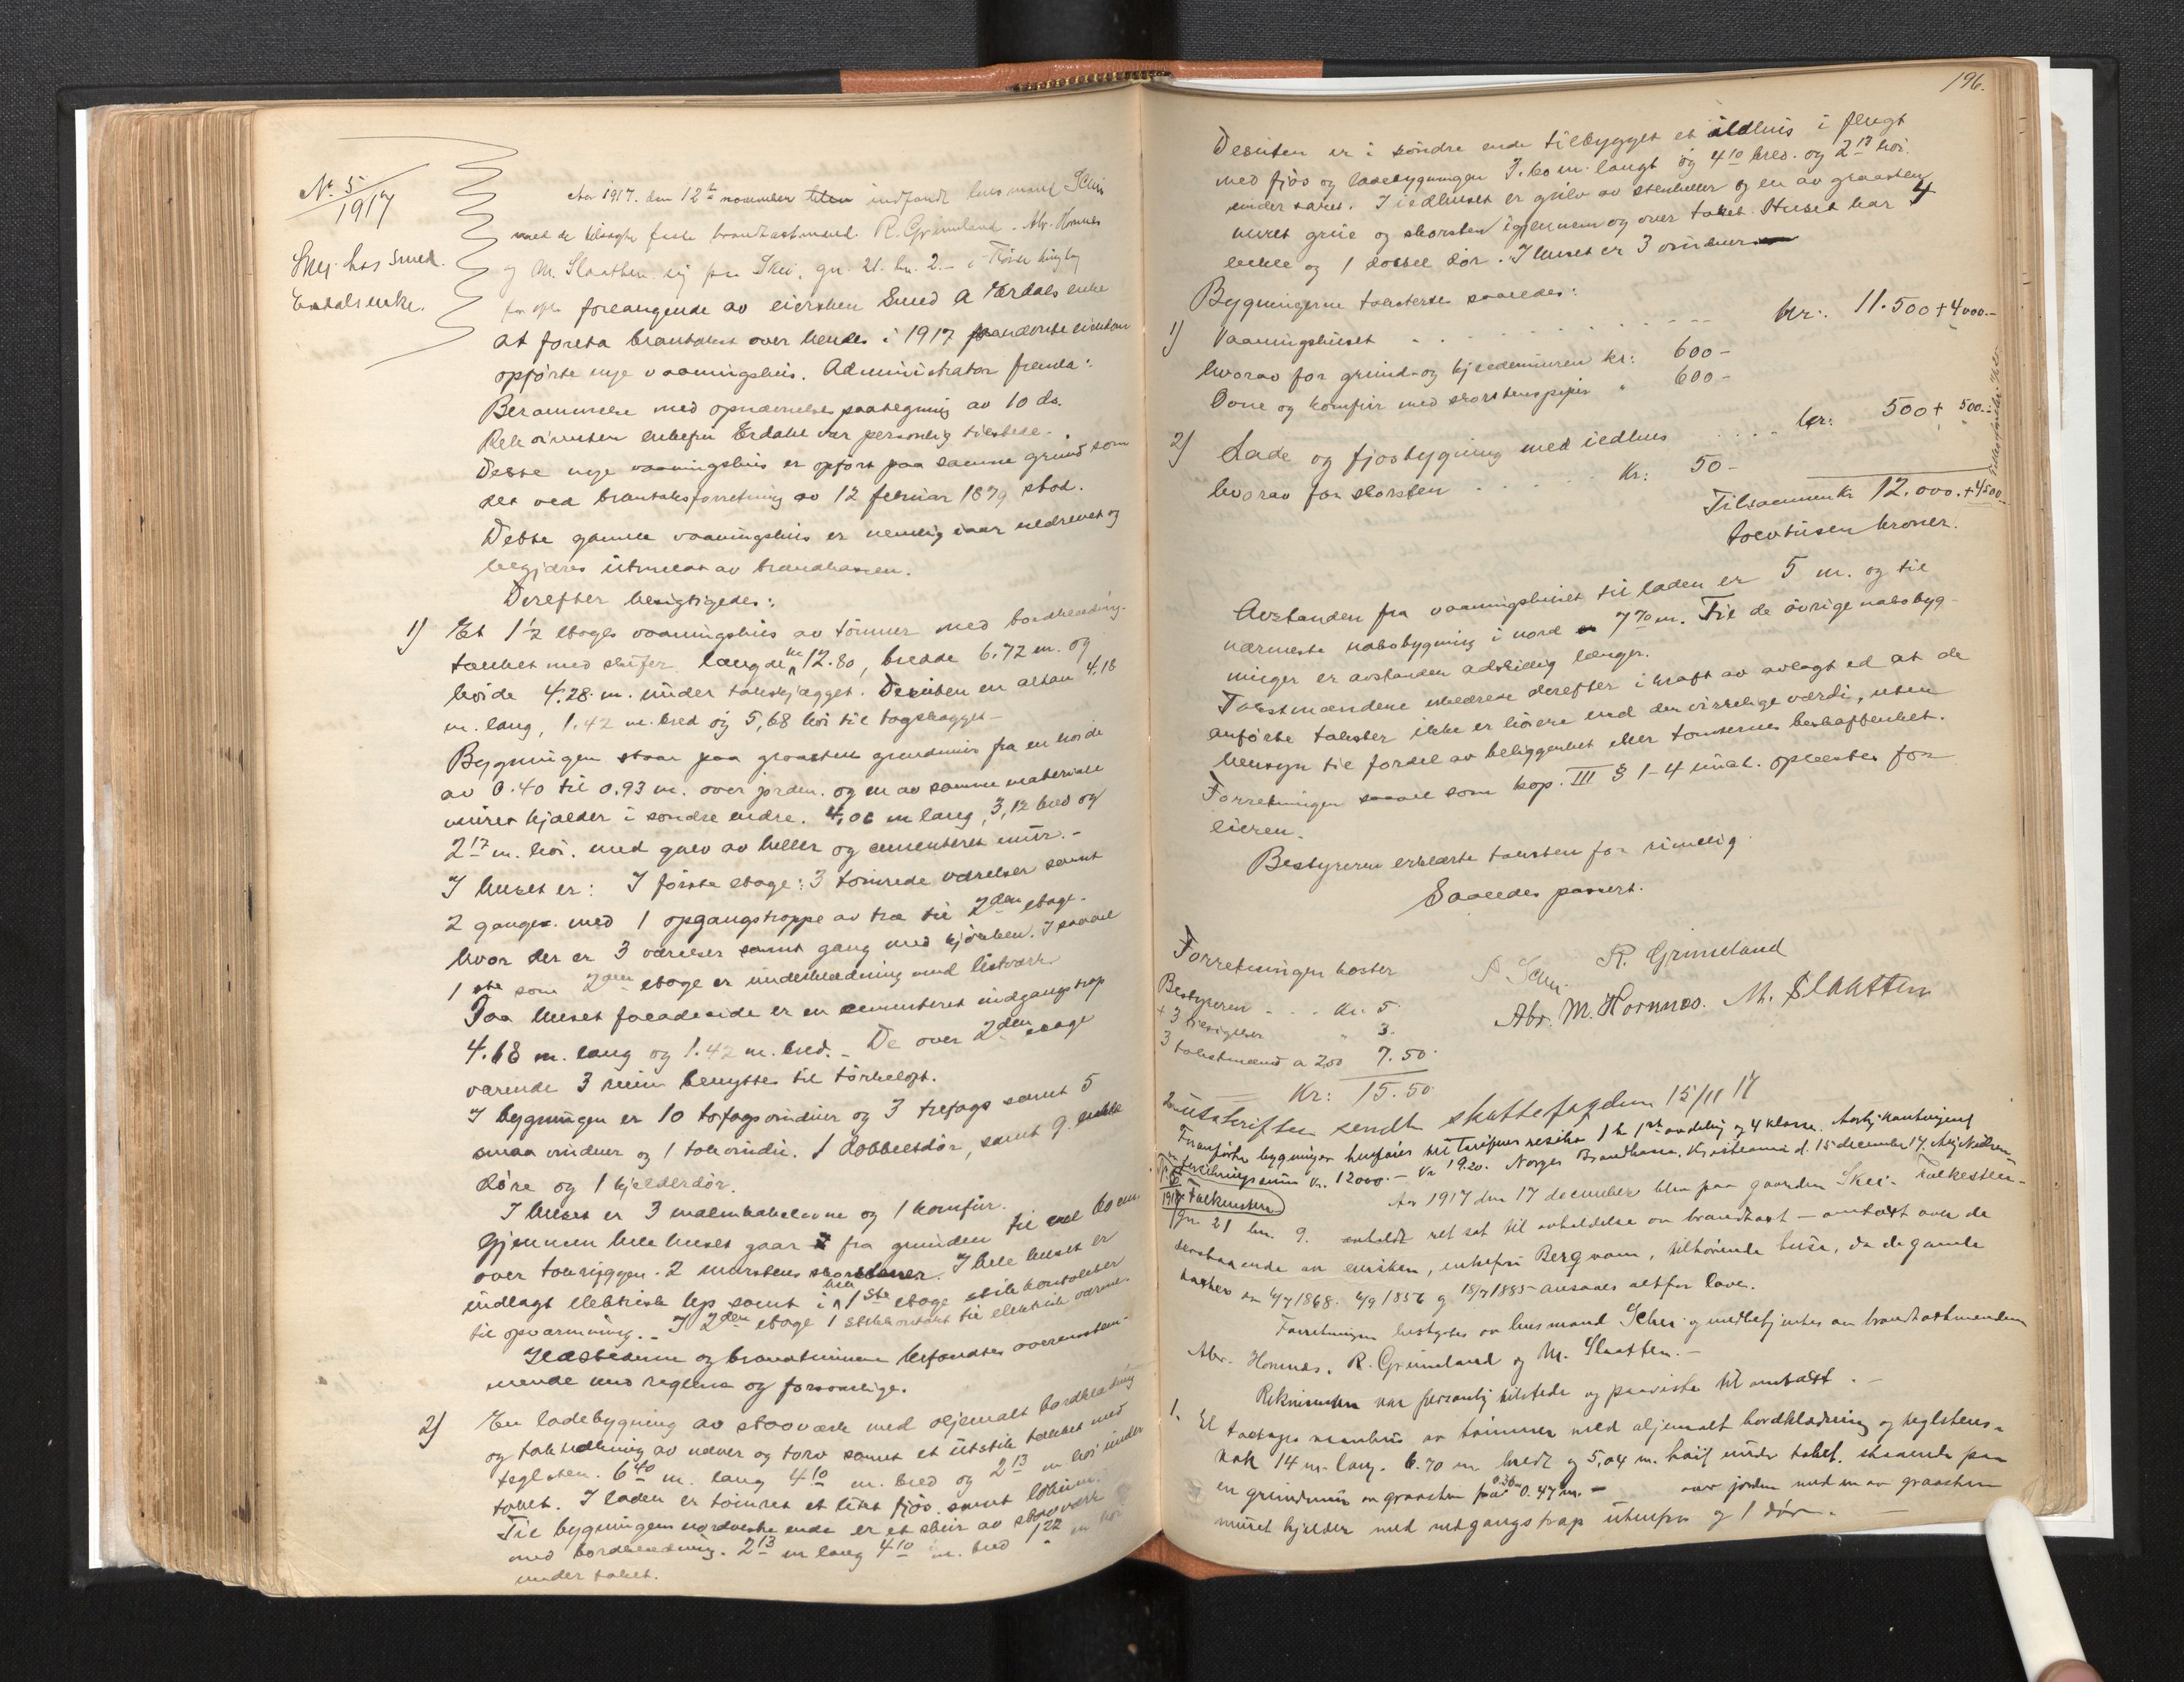 No. 5/1917
Skei hos smed
Erdals enke.
Aar 1917. den 12te november blev indfandt lensmand Schei
med de tillagte faste brandtakstmænd R. Grimeland. Abr. Hornnes
og M. Slaatten sig paa Skei, gn. 21. bn. 2. i
for efter forlangende av eiersken Smed A Erdals enke
at foreta brantakst over hendes i 1917
opførte nye vaaningshus. Administrator fremla:
Berammelse med opnævnelses paategning av 10 ds.
Rekvirenten enkefru Erdahl var personlig tilstede.
Dette nye vaaningshus er opført paa samme grund som
det ved brantakstforretning av 12 februar 1879 stod.
Dette gamle vaaningshus er nemlig iaar nedrevet og
begjæres utmeldt av brandkassen.
Derefter besigtigedes:
1) Et 1½ etages vaaningshus av tømmer med bordklædning
tækket med skifer. længde 12.80, bredde 6.72 m. og
høide 4.28 m. under takskjægget. Desuten en altan 4,18
m. lang, 1.42 m. bred og 5,68 høi til tagskægget
Bygningen staar paa graastens grundmur fra en høide
av 0.40 til 0.93 m. over jorden. og en av samme materiale
muret kjælder i søndre endre. 4,06 m lang, 3,12 bred og
2 17 m. høi. med gulv av heller og cementeret mur.
I huset er: I første etage: 3 tømrede værelser samt
2 ganger med 1 opgangstrappe av træ til 2den etage.
hvor der er 3 værelser samt gang med kjøkken. I saavel
1ste som 2den etage er underklædning med listværk
Paa huset facadeside er en cementeret indgangstrap
4.68 m. lang og 1.42 m. bred. De over 2den etage
værende 3 rum benyttes til tørkeloft.
I bygningen er 10 tofagsvinduer og 3 trefags samt 5
smaa vinduer og 1 takvindu. 1 dobbeltdør, samt 9 enkle
døre og 1 kjælderdør.
I huset er 3 malmkakelovne og 1 komfur.
Gjennem hele huset gaar fra grunden til vel 60 cm
over takryggen. 2 murstens skorstener. I hele huset er
indlagt elektrisk lys samt i 1ste etage stikkontakter
til opvarmning. I 2den etage 1 stikkontakt til elektrisk varme.
Ildstederne og brandmurene befandtes overensstem-
mende med reglerne og forsvarlige.
2) En ladebygning av stavværk med oljemalt bordklædning
og taktækning av næver og torv samt et utstik tækket med
teglsten. 6 40 m. lang 4 10 m. bred og 2 13 m. høi under
taket. I laden er tømret et litet fjøs samt
Til bygningens nordvestre ende er et skur av stavværk
med bordklædning. 2 13 m lang 4 10 m. bred 1 22 m høi
under taket.
196.
Desuten er i søndre ende tilbygget et ildhus i flugt
med fjøs og ladebygningen 3.60 m. langt og 4 10 bred. og 2 17 høi.
under taket. I ildhuset er gulv av stenheller og en av graasten
muret grue og skorsten igjennem og over taket. Huset har 4
enkle og 1 dobbel dør. I huset er 3 vinduer
Bygningerne taksterte saaledes:
1) Vaaningshuset . . . . . . Kr: 11.500 + 4000.-
hvorav for grund og kjældermuren kr: 600-
Ovne og komfur med skorstenspiper " 600-
2) Lade og fjøsbygning med ildhus . . . . kr: 500 + 500.-
hvorav for skorsten . . . . . . Kr: 50-
Tilsammen kr 12.000. + 4500.-
tolvtusen kroner.
Avstanden fra vaaningshuset til laden er 5 m. og til
nærmeste nabobygning i nord 7 70 m. Til de øvrige nabobyg-
ninger er avstanden adskillig længer.
Takstmændene erklærede derefter i kraft av avlagt ed at de
anførte takster ikke er høiere end den virkelige værdi, uten
hensyn til fordel av beliggenhet eller tomternes beskaffenhet.
Forretningen saavel som kap. III § 1-4 incl. oplæstes for
eieren.
Bestyreren erklærte taksten for rimelig.
Saaledes passert.
Forretningen koster
R. Grimeland
Abr. M. Hornnes. M. Slaatten
Bestyreren . . . Kr. 5.
" 3.
3 takstmænd a 2,50 7.50
Kr: 15.50
Utskriften sendt skattefogden 15/11 17
Foranførte bygninger henføres til Tarifnes risiko 1 h 1ste avdeling og 4 klasse. Aarlig kontingent
forsikringssum Kr. 12000.- Kr 19.20. Norges Brandkasse, Kristiania d. 15 december 17.
1917 Falkensteen
Aar 1917 den 17 december blev paa gaarden Skei - Falkesteen -
gn 21 bn. 9. avholdt ret sat til avholdelse av brandtakst - omtakst over de
denstaaende av eiersken, enkefru Bergvam, tilhørende huse, da de gamle
takster av 4/7 1868. 4/9 1856 og 18/7 1885 ansaaes altfor lave.
Forretningen bestyrtes av lensmand Schei og medbetjentes av brandtakstmændene
Abr. Hornnes, R. Grimeland og M. Slaatten.-
Rekvirenten var personlig tilstede og paaviste til omtakst.-
1. Et toetages vaanhus av tømmer med oljemalt bordklædning og teglstens-
tak 14 m. lang. 6.70 m bredt og 5,04 m. høit under taket. staaende paa
en grundmur av graasten fra 0.36 0.47 m. - over jorden med en av graasten
muret kjelder med nedgangstrap utenfra og 1 dør.-